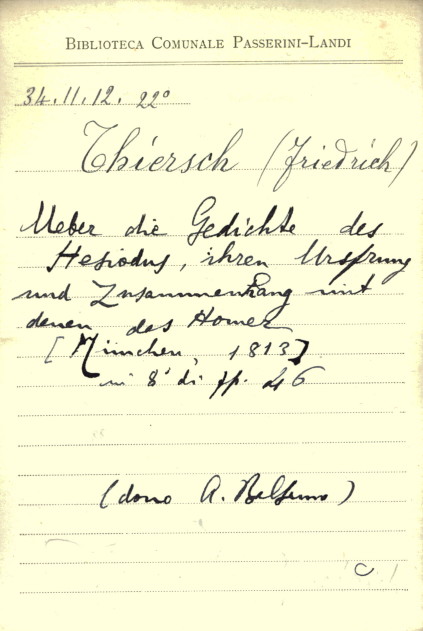 BIBLIOTECA COMUNALE PASSERINI-LANDI
34.11.12. 22º
Thiersch (Friedrich)
Ueber die Gedichte des
Hesiodus, ihren Ursprung
und Zusammenhang mit
denen des Homer
[München, 1813]
in 8º di pp. 46
(dono A.
C